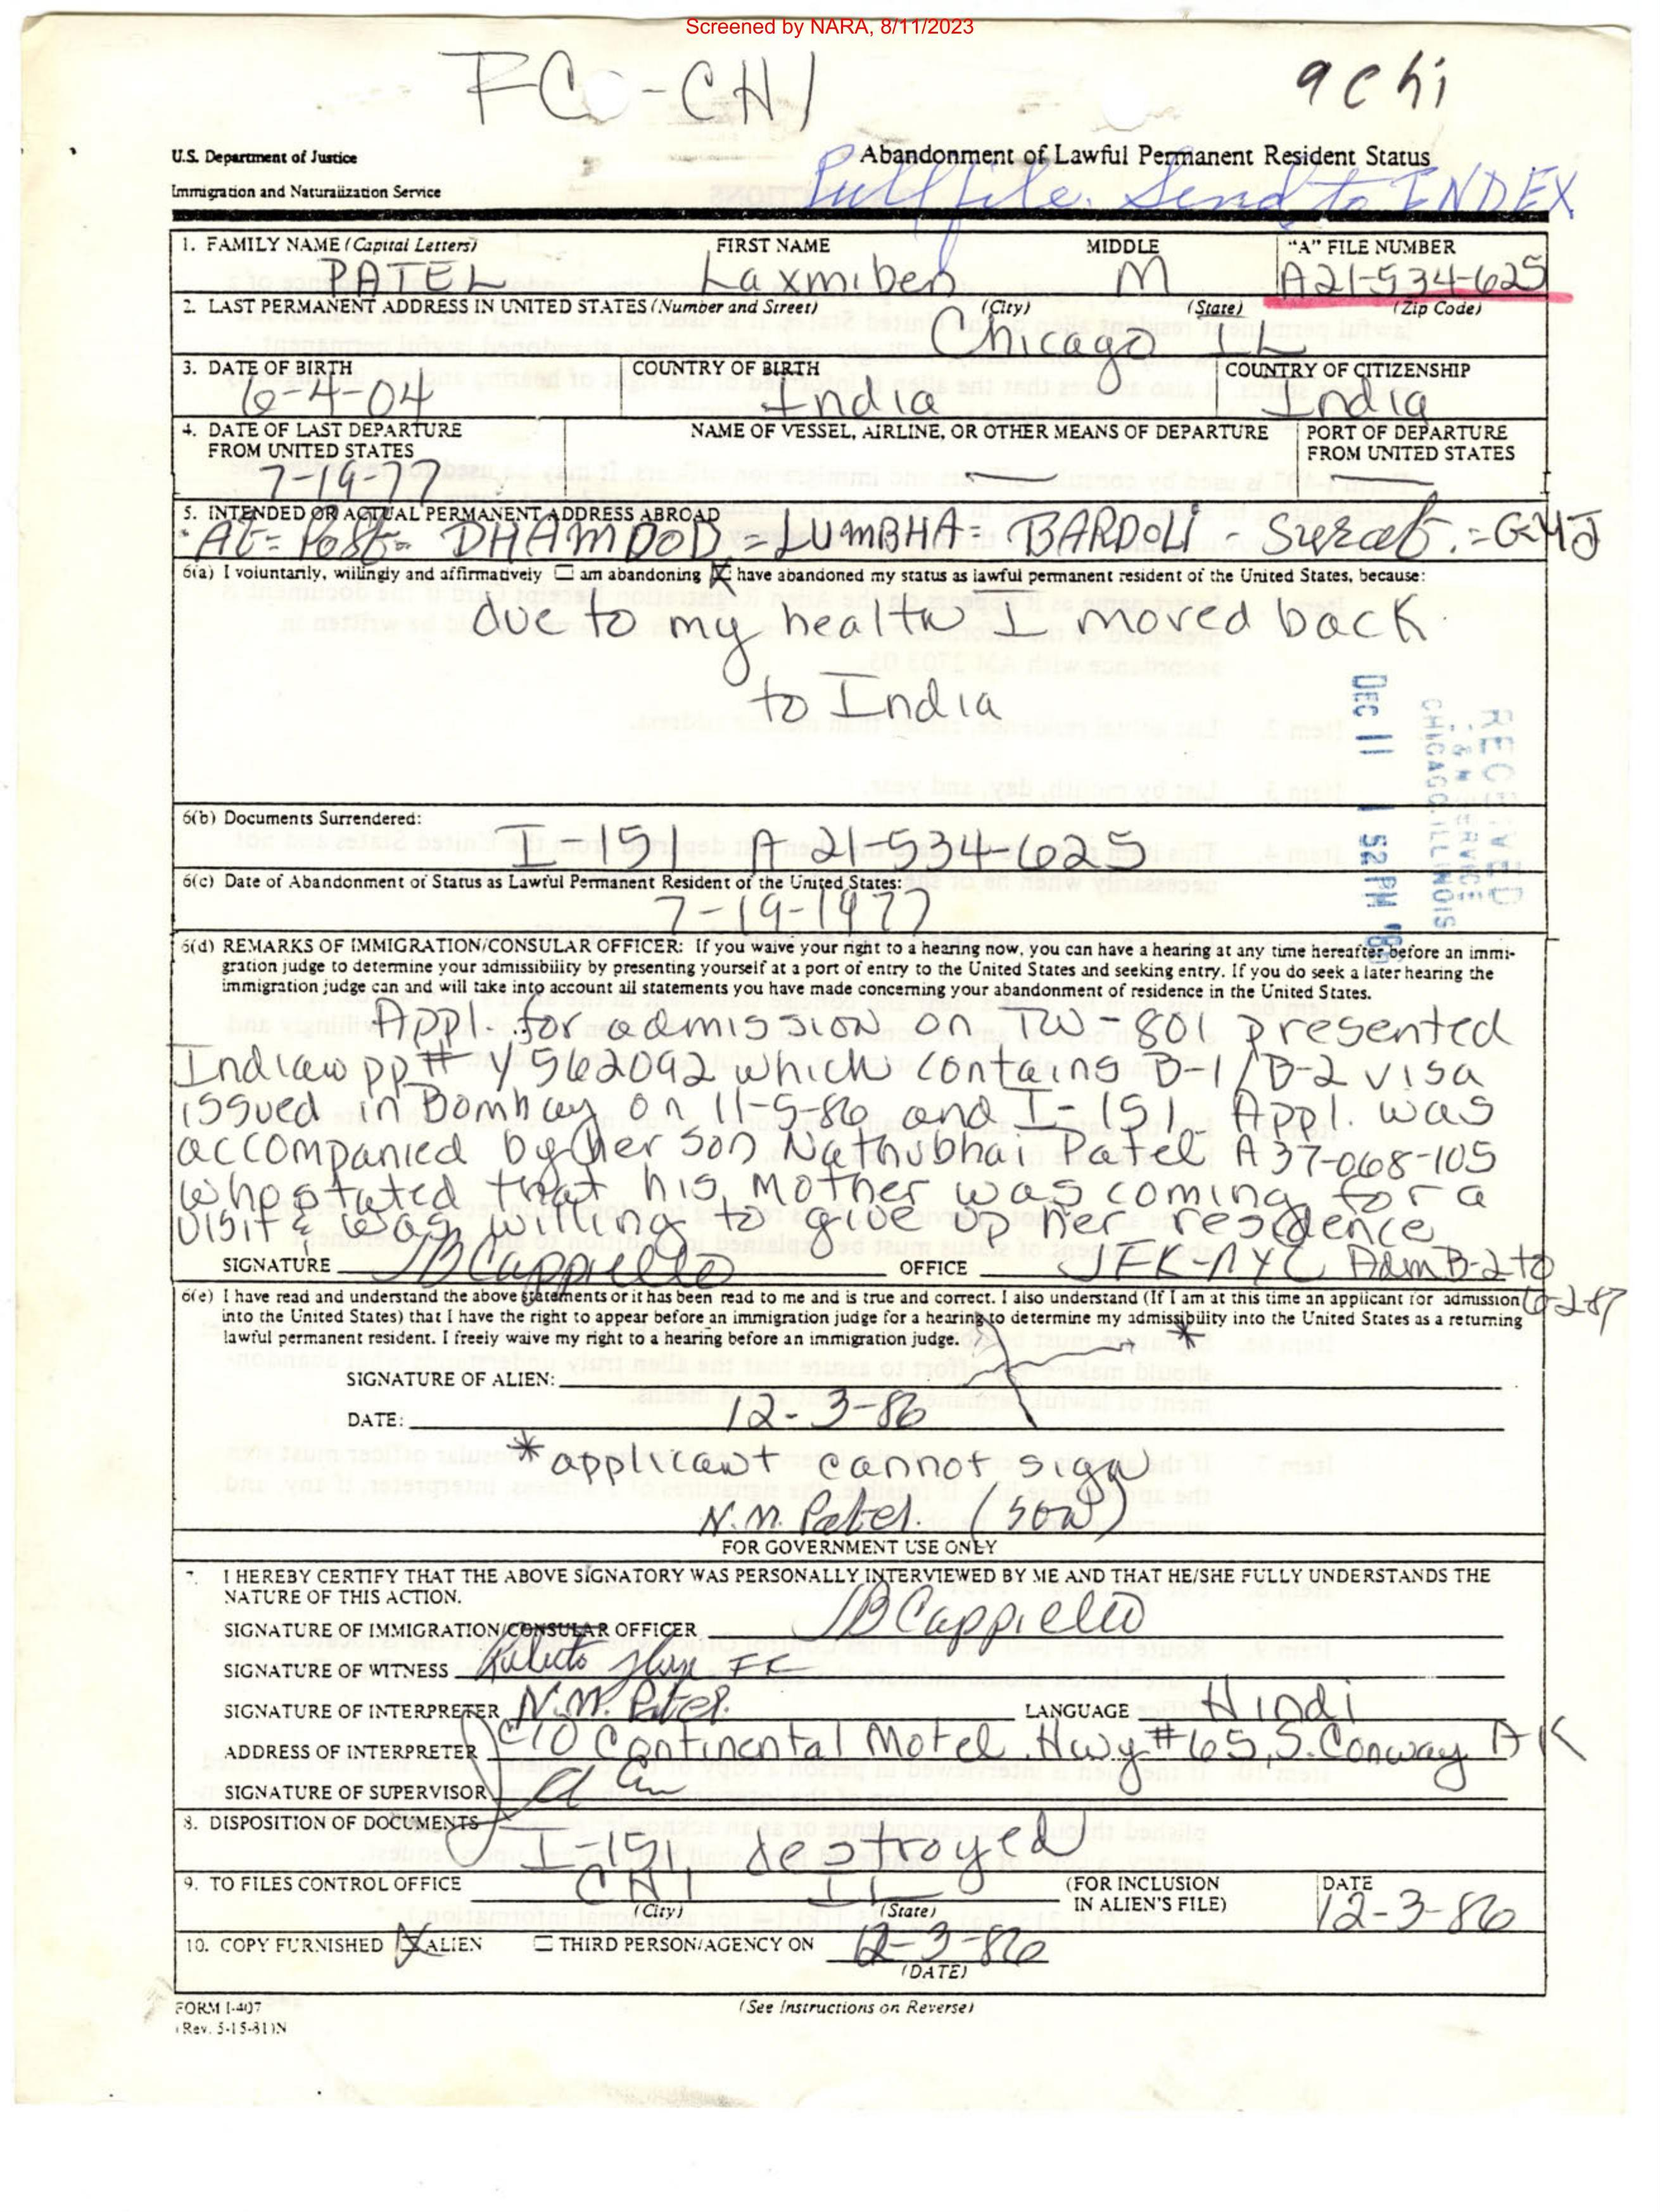 Screened by NARA, 8/11/2023
FCO-CHI
9chi
U.S. Department of Justice
Immigration and Naturalization Service
Abandonment of Lawful Permanent Resident Status
Pull file. Send to INDEX
1. FAMILY NAME (Capital Letters) FIRST NAME MIDDLE "A" FILE NUMBER
PATEL Laxmiben M A21-534-625
2. LAST PERMANENT ADDRESS IN UNITED STATES (Number and Street) (City) (State) (Zip Code)
Chicago IL
3. DATE OF BIRTH COUNTRY OF BIRTH COUNTRY OF CITIZENSHIP
6-4-04 India India
4. DATE OF LAST DEPARTURE FROM UNITED STATES NAME OF VESSEL, AIRLINE, OR OTHER MEANS OF DEPARTURE PORT OF DEPARTURE FROM UNITED STATES
7-19-77 — —
5. INTENDED OR ACTUAL PERMANENT ADDRESS ABROAD
At= Post= DHAMDOD.=LUMBHA= BARDOLI - Surat.=GUJ
6(a) I voluntarily, willingly and affirmatively ☐ am abandoning ☒ have abandoned my status as lawful permanent resident of the United States, because:
due to my health I moved back
to India
RECEIVED
I & N SERVICE
CHICAGO, ILLINOIS
DEC 11 1 52 PM '86
6(b) Documents Surrendered:
I-151 A21534625
6(c) Date of Abandonment of Status as Lawful Permanent Resident of the United States:
7-19-1977
6(d) REMARKS OF IMMIGRATION/CONSULAR OFFICER: If you waive your right to a hearing now, you can have a hearing at any time hereafter before an immi-
gration judge to determine your admissibility by presenting yourself at a port of entry to the United States and seeking entry. If you do seek a later hearing the
immigration judge can and will take into account all statements you have made concerning your abandonment of residence in the United States.
Appl. for admission on TW-801 presented
Indian pp# Y562092 which contains B-1/B-2 visa
issued in Bombay on 11-5-86 and I-151. Appl. was
accompanied by her son Nathubhai Patel A37-068-105
who stated that his mother was coming for a
visit & was willing to give up her residence
SIGNATURE JBCappiello OFFICE JFK-NYC Adm B-2 to
6-2-87
6(e) I have read and understand the above statements or it has been read to me and is true and correct. I also understand (If I am at this time an applicant for admission
into the United States) that I have the right to appear before an immigration judge for a hearing to determine my admissibility into the United States as a returning
lawful permanent resident. I freely waive my right to a hearing before an immigration judge.
SIGNATURE OF ALIEN: X *
DATE: 12-3-86
* applicant cannot sign
N.M. Patel. (son)
FOR GOVERNMENT USE ONLY
7. I HEREBY CERTIFY THAT THE ABOVE SIGNATORY WAS PERSONALLY INTERVIEWED BY ME AND THAT HE/SHE FULLY UNDERSTANDS THE
NATURE OF THIS ACTION.
SIGNATURE OF IMMIGRATION/CONSULAR OFFICER JBCappiello
SIGNATURE OF WITNESS
SIGNATURE OF INTERPRETER N.M. Patel. LANGUAGE Hindi
ADDRESS OF INTERPRETER c/o Continental Motel Hwy #65, S. Conway AK
SIGNATURE OF SUPERVISOR
8. DISPOSITION OF DOCUMENTS
I-151 destroyed
9. TO FILES CONTROL OFFICE CHI IL (FOR INCLUSION IN ALIEN'S FILE) DATE
(City) (State) 12-3-86
10. COPY FURNISHED ☒ ALIEN ☐ THIRD PERSON/AGENCY ON 12-3-86
(DATE)
FORM I-407
(Rev. 5-15-81)N
(See Instructions on Reverse)